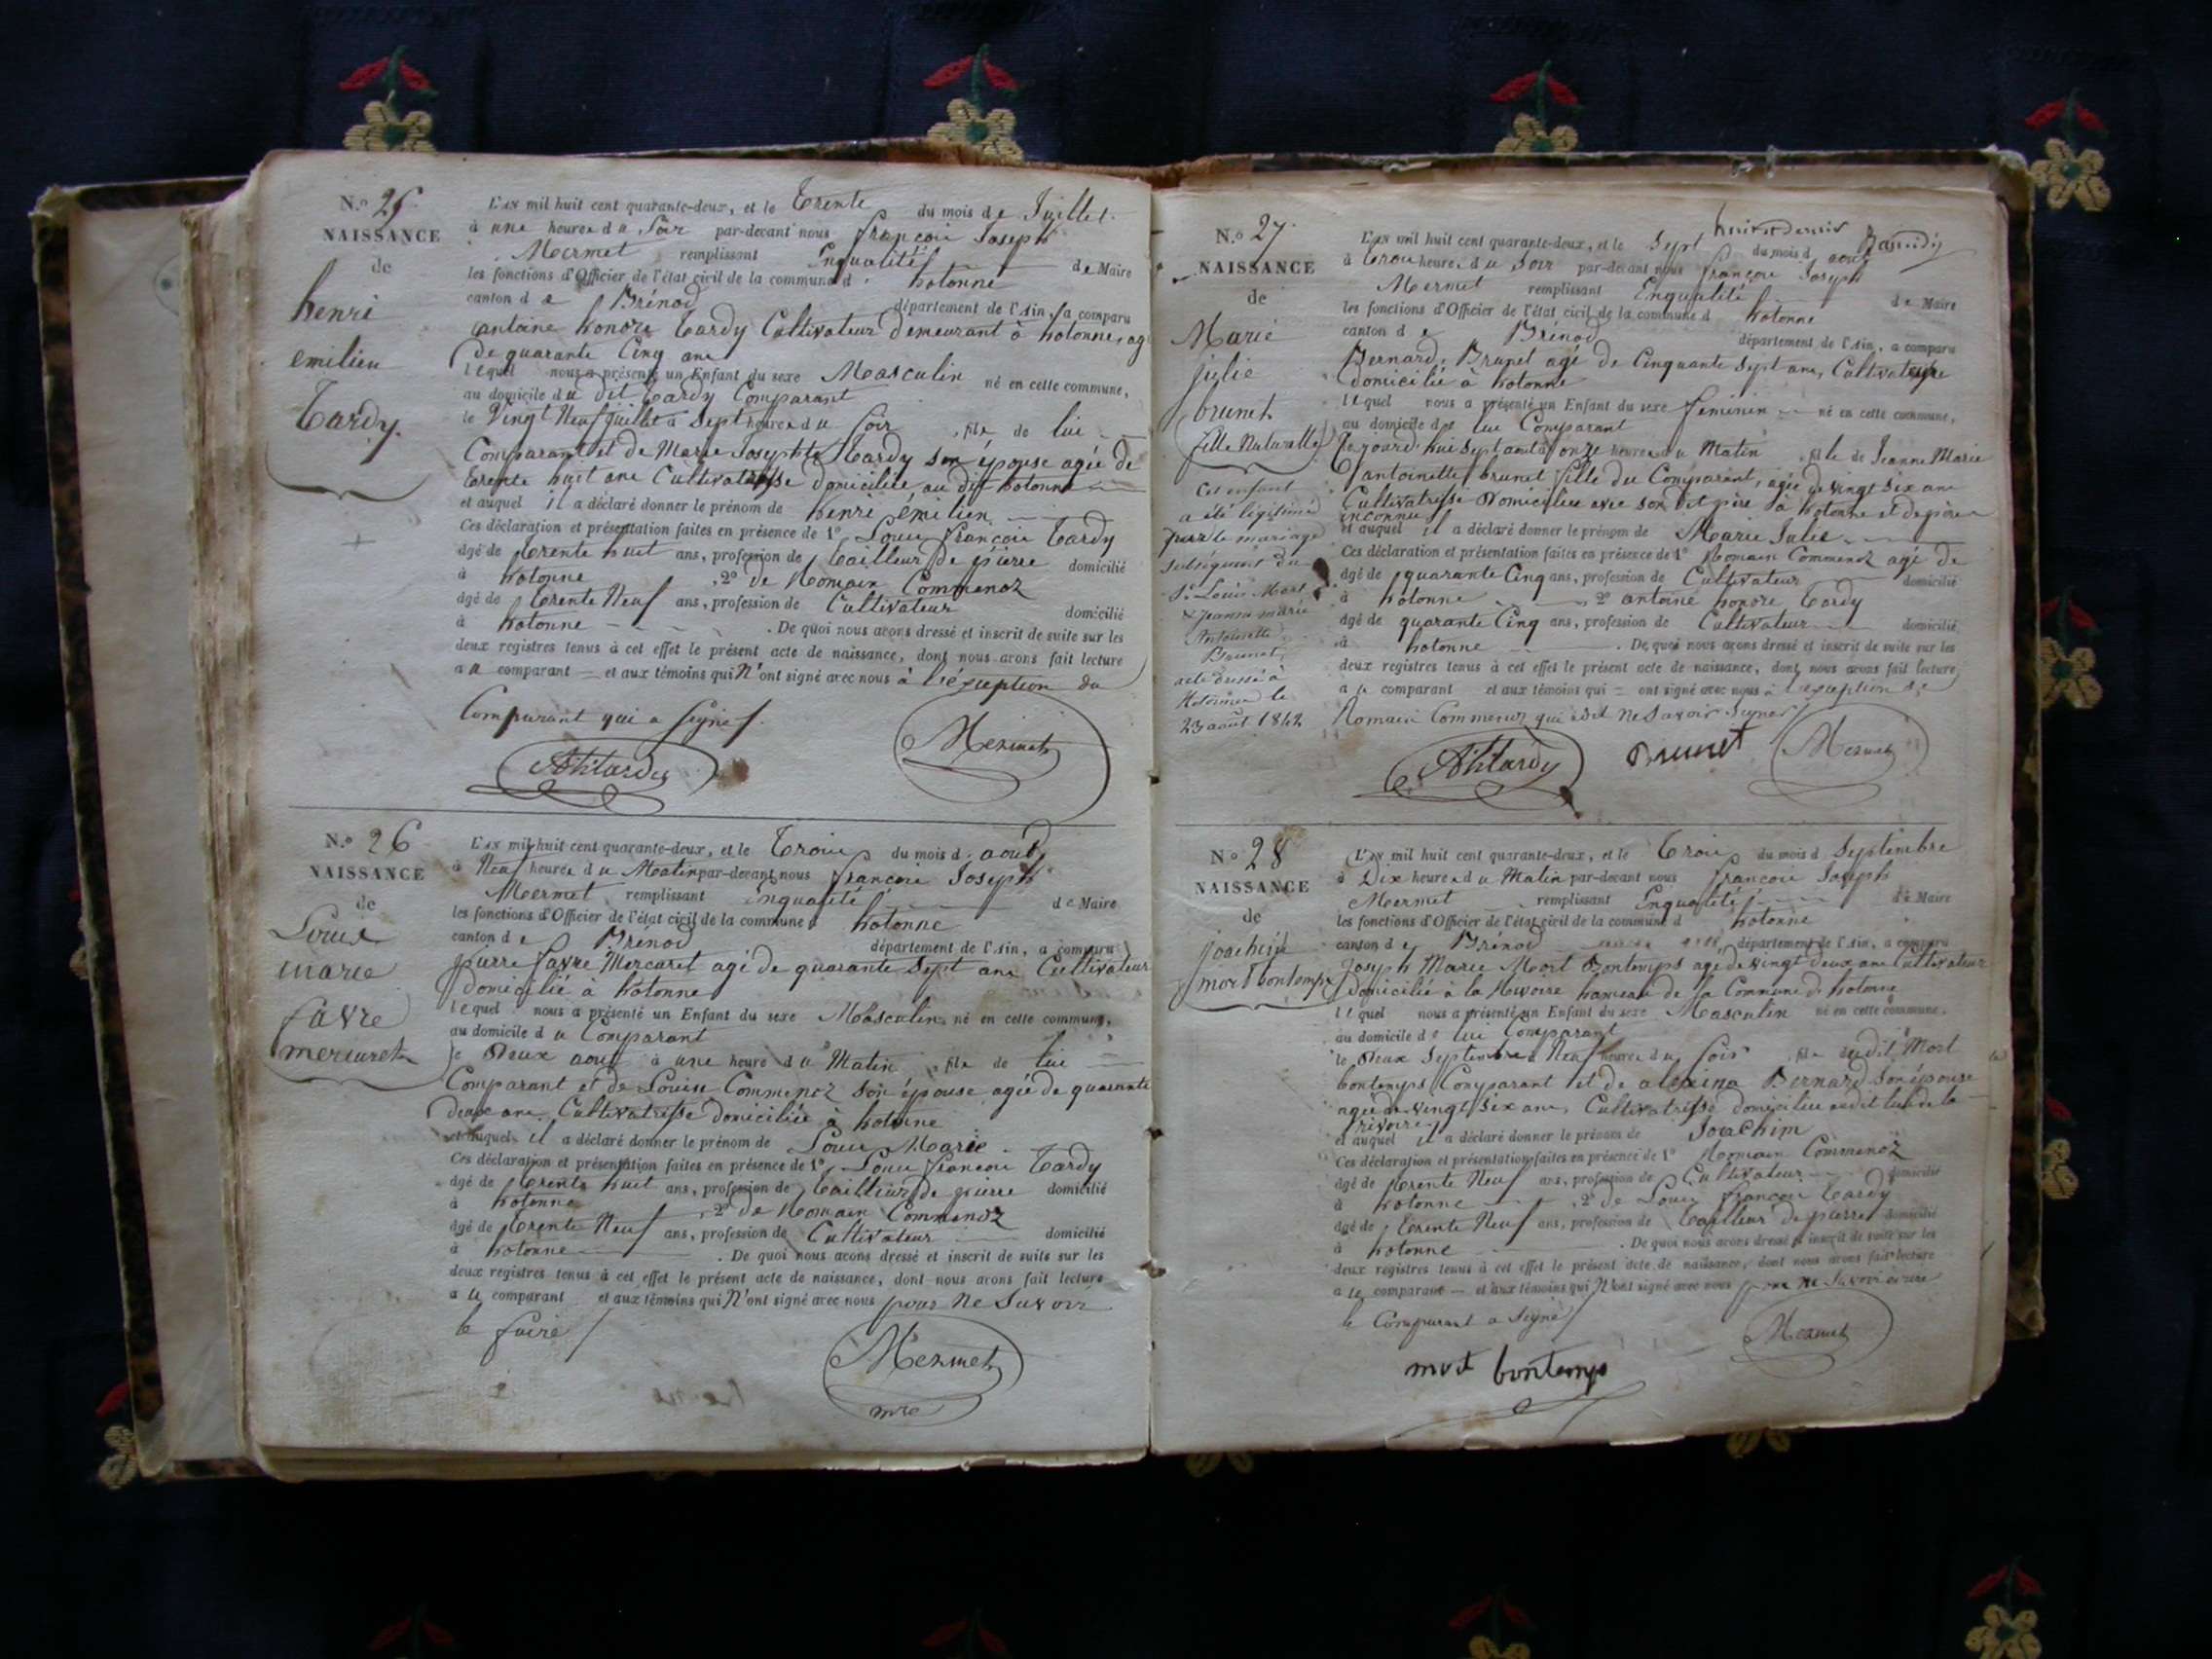 N.o 25
NAISSANCE
de
henri
emilien
Tardy.
L'AN mil huit cent quarante-deux, et le Trente du mois de Juillet.
à une heure du Soir par-devant nous françois Joseph
Mermet remplissant Enqualité de Maire
les fonctions d'Officier de l'état civil de la commune d hotonne
canton de Brénod département de l'Ain, a comparu
antoine honore Tardy Cultivateur demeurant à hotonne, agé
de quarante Cinq ans
lequel nous a présenté un Enfant du sexe Masculin né en cette commune,
au domicile du dit Tardy Comparant
le Vingt Neuf Juillet à Sept heures du Soir , fils de lui
Comparant et de Marie Josephte Tardy son épouse agée de
trente huit ans Cultivatrisse domiciliée au dit hotonne
et auquel il a déclaré donner le prénom de henri émilien
Ces déclaration et présentation faites en présence de 1° Louis françois Tardy
âgé de trente huit ans, profession de Tailleur de pierre domicilié
à hotonne , 2° de Romain Commenoz
âgé de trente Neuf ans, profession de Cultivateur domicilié
à hotonne . De quoi nous avons dressé et inscrit de suite sur les
deux registres tenus à cet effet le présent acte de naissance, dont nous avons fait lecture
au comparant et aux témoins qui N'ont signé avec nous à l'éxception du
Comparant qui a Signé
AhTardy Mermet
N.o 26
NAISSANCE
de
Louis
marie
favre
mercuret
L'AN mil huit cent quarante-deux, et le Trois du mois d août
à Neuf heures du Matin par-devant nous françois Joseph
Mermet remplissant Enqualité de Maire
les fonctions d'Officier de l'état civil de la commune d hotonne
canton de Brénod département de l'Ain, a comparu
pierre favre Mercuret agé de quarante Sept ans Cultivateur
domicilié à hotonne
lequel nous a présenté un Enfant du sexe Masculin né en cette commune,
au domicile du Comparant
le Deux août à une heure du Matin , fils de lui
Comparant et de Louise Commenoz son épouse agée de quarante
deux ans Cultivatrisse domiciliée à hotonne
et auquel il a déclaré donner le prénom de Louis Marie
Ces déclaration et présentation faites en présence de 1° Louis françois Tardy
âgé de trente huit ans, profession de Tailleur de pierre domicilié
à hotonne , 2° de Romain Commenoz
âgé de trente Neuf ans, profession de Cultivateur domicilié
à hotonne . De quoi nous avons dressé et inscrit de suite sur les
deux registres tenus à cet effet le présent acte de naissance, dont nous avons fait lecture
au comparant et aux témoins qui N'ont signé avec nous pour Ne Savoir
le faire
Mermet
mre
N.o 27
NAISSANCE
de
Marie
julie
brunet
fille Naturelle
Cet enfant
a été légitimé
par le mariage
subséquent du
Sr Louis Mort
& Jeanne marie
Antoinette
Brunet,
acte dressé à
Hotonne le
23 août 1842
L'AN mil huit cent quarante-deux, et le Sept du mois d août
à trois heures du Soir par-devant nous françois Joseph
Mermet remplissant Enqualité de Maire
les fonctions d'Officier de l'état civil de la commune d hotonne
canton de Brénod département de l'Ain, a comparu
Bernard Brunet agé de Cinquante Sept ans, Cultivateur
domicilié à hotonne
lequel nous a présenté un Enfant du sexe feminin né en cette commune,
au domicile de lui Comparant
aujourd'hui Sept août à onze heures du Matin , fille de Jeanne Marie
antoinette brunet fille du Comparant, agée de vingt Six ans
Cultivatrisse Domiciliée avec son dit père à hotonne et de père
inconnu
et auquel il a déclaré donner le prénom de Marie Julie
Ces déclaration et présentation faites en présence de 1° Romain Commenoz agé de
âgé de quarante Cinq ans, profession de Cultivateur domicilié
à hotonne , 2° antoine honore Tardy
âgé de quarante Cinq ans, profession de Cultivateur domicilié
à hotonne . De quoi nous avons dressé et inscrit de suite sur les
deux registres tenus à cet effet le présent acte de naissance, dont nous avons fait lecture
au comparant et aux témoins qui ont signé avec nous à l'exception de
Romain Commenoz qui a dit Ne Savoir Signer
AhTardy Brunet Mermet
N.o 28
NAISSANCE
de
joachim
mort bontemps
L'AN mil huit cent quarante-deux, et le Trois du mois d Septembre
à Dix heures du Matin par-devant nous françois Joseph
Mermet remplissant Enqualité de Maire
les fonctions d'Officier de l'état civil de la commune d hotonne
canton de Brénod département de l'Ain, a comparu
Joseph Marie Mort Bontemps agé de vingt deux ans Cultivateur
domicilié à la Rivoire hameau de la Commune de hotonne
lequel nous a présenté un Enfant du sexe Masculin né en cette commune,
au domicile de lui Comparant
le Deux Septembre à Neuf heures du Soir , fils dudit Mort
bontemps Comparant et de alexina Bernard Son épouse
agée de vingt Six ans, Cultivatrisse domiciliée audit lieu de la
Rivoire
et auquel il a déclaré donner le prénom de Joachim
Ces déclaration et présentation faites en présence de 1° Romain Commenoz
âgé de trente Neuf ans, profession de Cultivateur domicilié
à hotonne , 2° de Louis françois Tardy
âgé de trente Neuf ans, profession de Tailleur de pierre domicilié
à hotonne . De quoi nous avons dressé et inscrit de suite sur les
deux registres tenus à cet effet le présent acte de naissance, dont nous avons fait lecture
au comparant et aux témoins qui N'ont signé avec nous pour Ne Savoir écrire
le Comparant a Signé
Mermet
mort bontemps